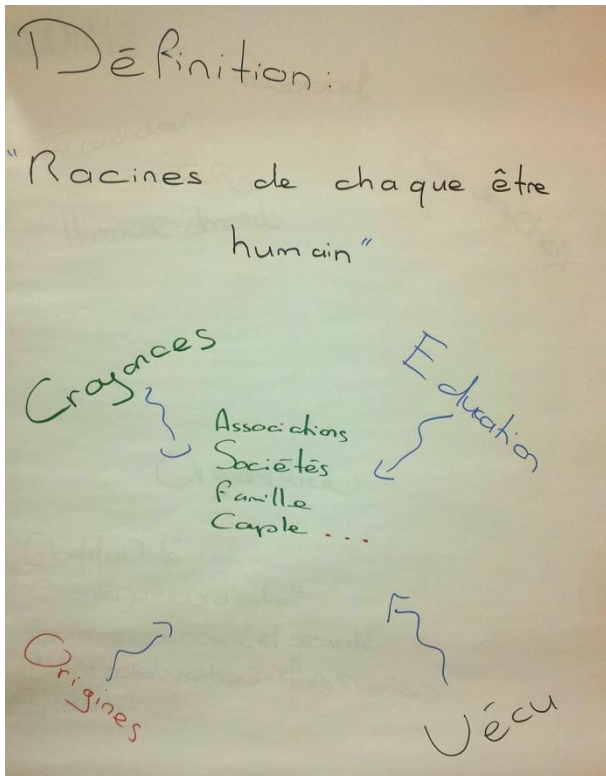 Définition:
"Racines de chaque être
humain"
Croyances
Education
Associations
Sociétés
Famille
Couple ...
Origines
Vécu